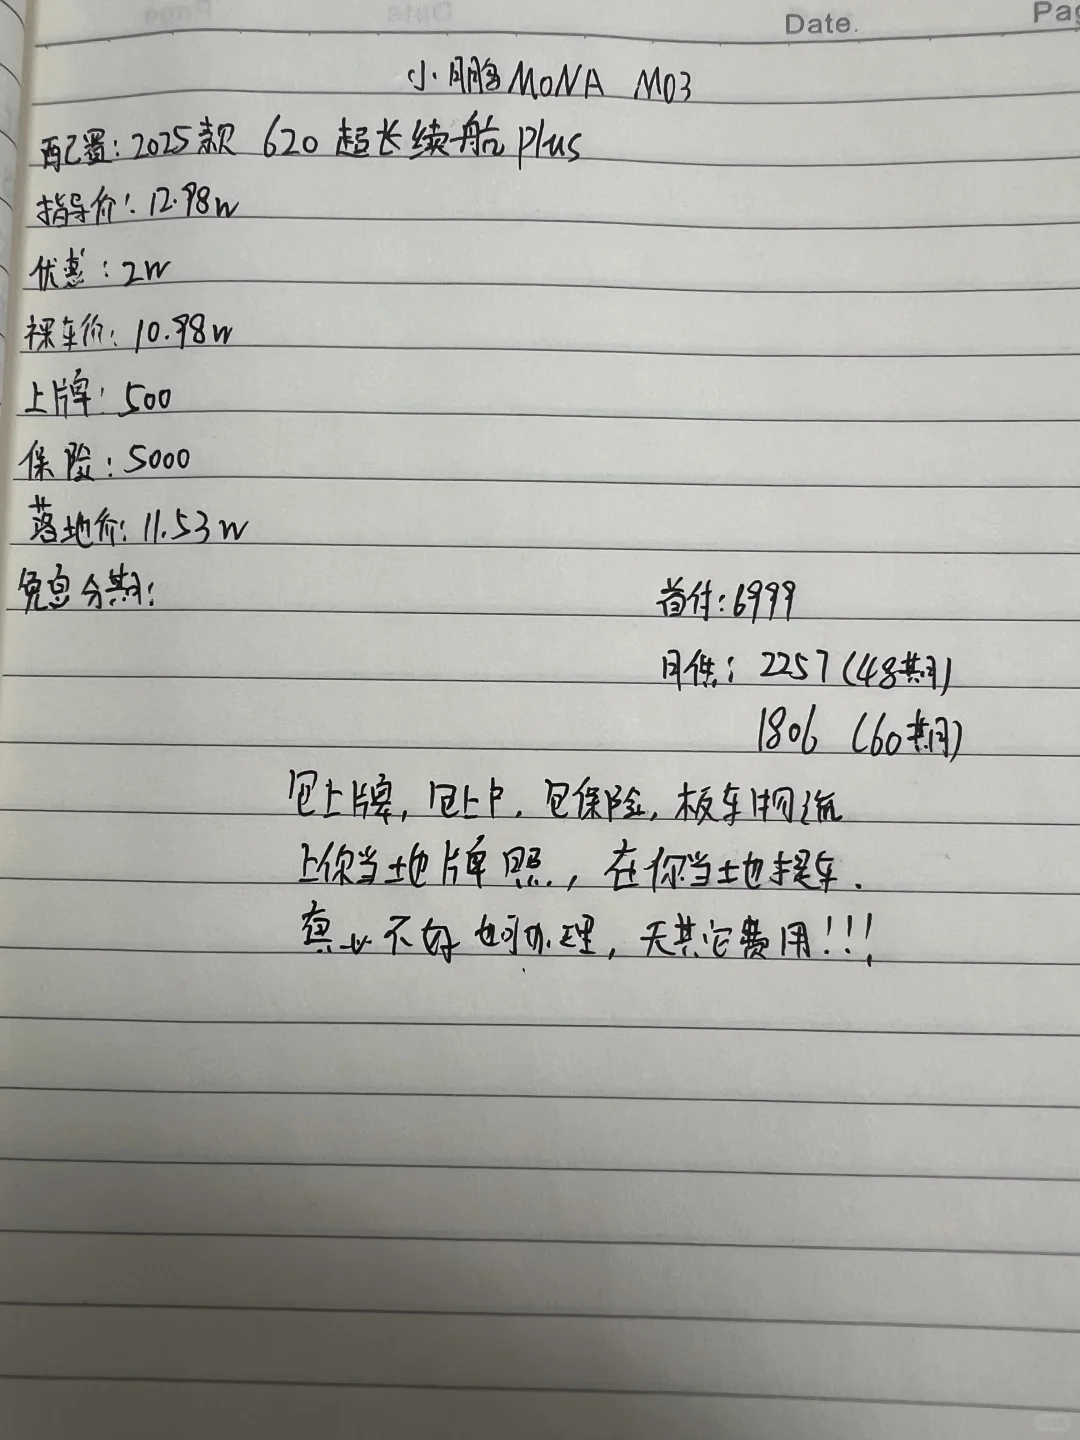 Date.
Pag
小鹏MONA M03
配置：2025款 620超长续航Plus
指导价：12.98w
优惠：2w
裸车价：10.98w
上牌：500
保险：5000
落地价：11.53w
免息分期：
首付：6999
月供：2257（48期）
1806（60期）
包上牌，包上户，包保险，板车物流
上你当地牌照，在你当地提车.
真业不好也可办理，无其它费用！！！